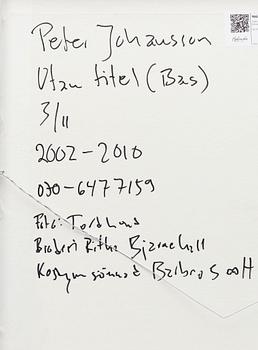 Peter Johansson
Utan titel (Bas)
3/11
2002-2010
070-6477159
Foto: Tord Lund
Broderi Ritha Bjarnehall
Kostymsömnad Barbro Scott